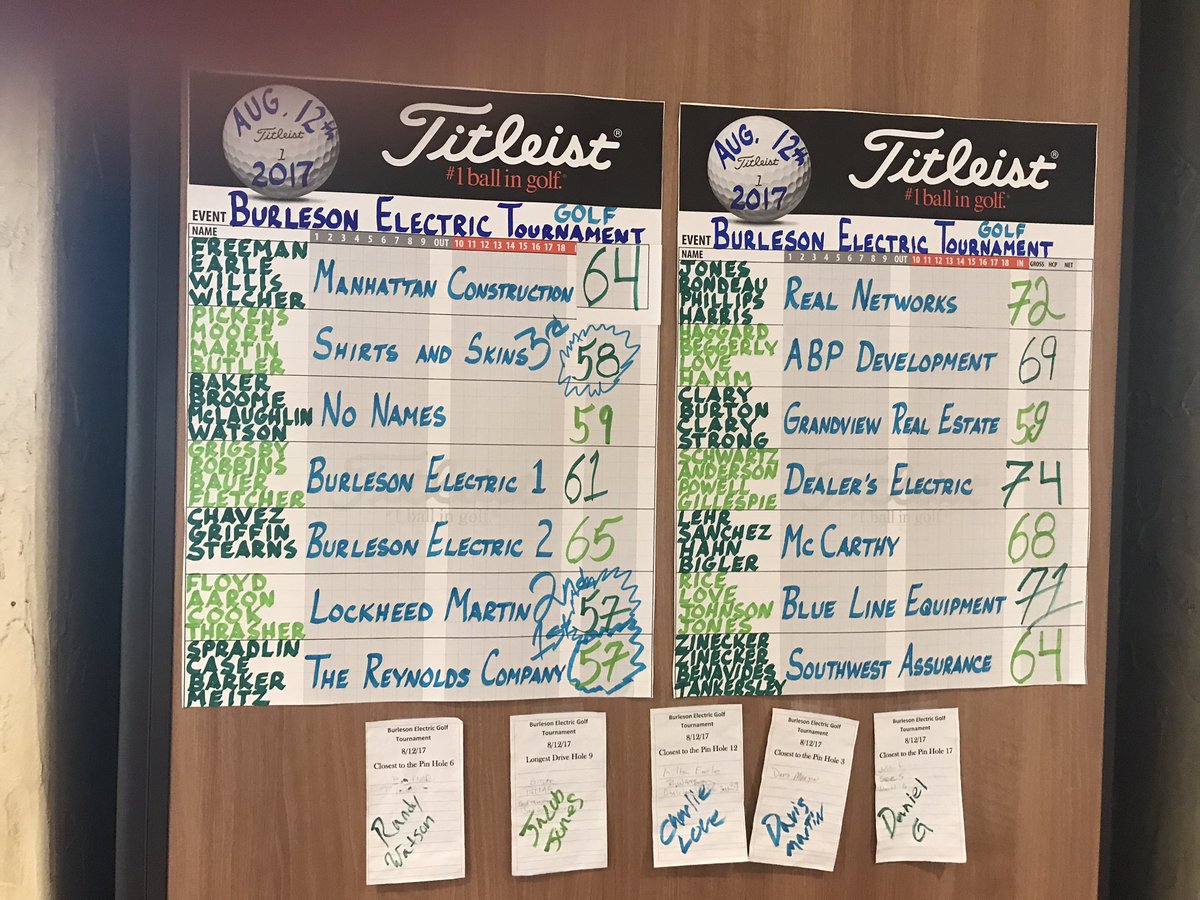 AUG. 12th
Titleist
1
2017
Titleist®
#1 ball in golf.®
EVENT BURLESON ELECTRIC GOLF TOURNAMENT
NAME 1 2 3 4 5 6 7 8 9 OUT 10 11 12 13 14 15 16 17 18
FREEMAN
EARLE
WILLIS
WILCHER
MANHATTAN CONSTRUCTION 64
PICKENS
MOORE
MARTIN
BUTLER
SHIRTS AND SKINS 3rd 58
BAKER
BROOME
McLAUGHLIN
WATSON
NO NAMES 59
GRIGSBY
ROBBINS
BAUER
FLETCHER
BURLESON ELECTRIC 1 61
CHAVEZ
GRIFFIN
STEARNS
BURLESON ELECTRIC 2 65
FLOYD
AARON
COOK
THRASHER
LOCKHEED MARTIN 2nd 57
SPRADLIN
CASE
BARKER
MEITZ
THE REYNOLDS COMPANY 1st 57
#1 ball in golf.
AUG. 12th
Titleist
1
2017
Titleist®
#1 ball in golf.®
EVENT BURLESON ELECTRIC GOLF TOURNAMENT
NAME 1 2 3 4 5 6 7 8 9 OUT 10 11 12 13 14 15 16 17 18 IN GROSS HCP NET
JONES
BONDEAU
PHILLIPS
HARRIS
REAL NETWORKS 72
HAGGARD
BEGGERLY
LOVE
HAMM
ABP DEVELOPMENT 69
CLARY
BURTON
CLARY
STRONG
GRANDVIEW REAL ESTATE 59
SCHWARTZ
ANDERSON
BOWELL
GILLESPIE
DEALER'S ELECTRIC 74
#1 ball in golf
LEHR
SANCHEZ
HAHN
BIGLER
MCCARTHY 68
RICE
LOVE
JOHNSON
JONES
BLUE LINE EQUIPMENT 71
ZINECKER
ZINECKER
BENAVIDES
TANKERSLEY
SOUTHWEST ASSURANCE 64
Burleson Electric Golf
Tournament
8/12/17
Closest to the Pin Hole 6
Randy
Watson
Burleson Electric Golf
Tournament
8/12/17
Longest Drive Hole 9
Jacob
Jones
Burleson Electric Golf
Tournament
8/12/17
Closest to the Pin Hole 12
Charlie
Love
Burleson Electric Golf
Tournament
8/12/17
Closest to the Pin Hole 3
Davis
Martin
Burleson Electric Golf
Tournament
8/12/17
Closest to the Pin Hole 17
Daniel
G